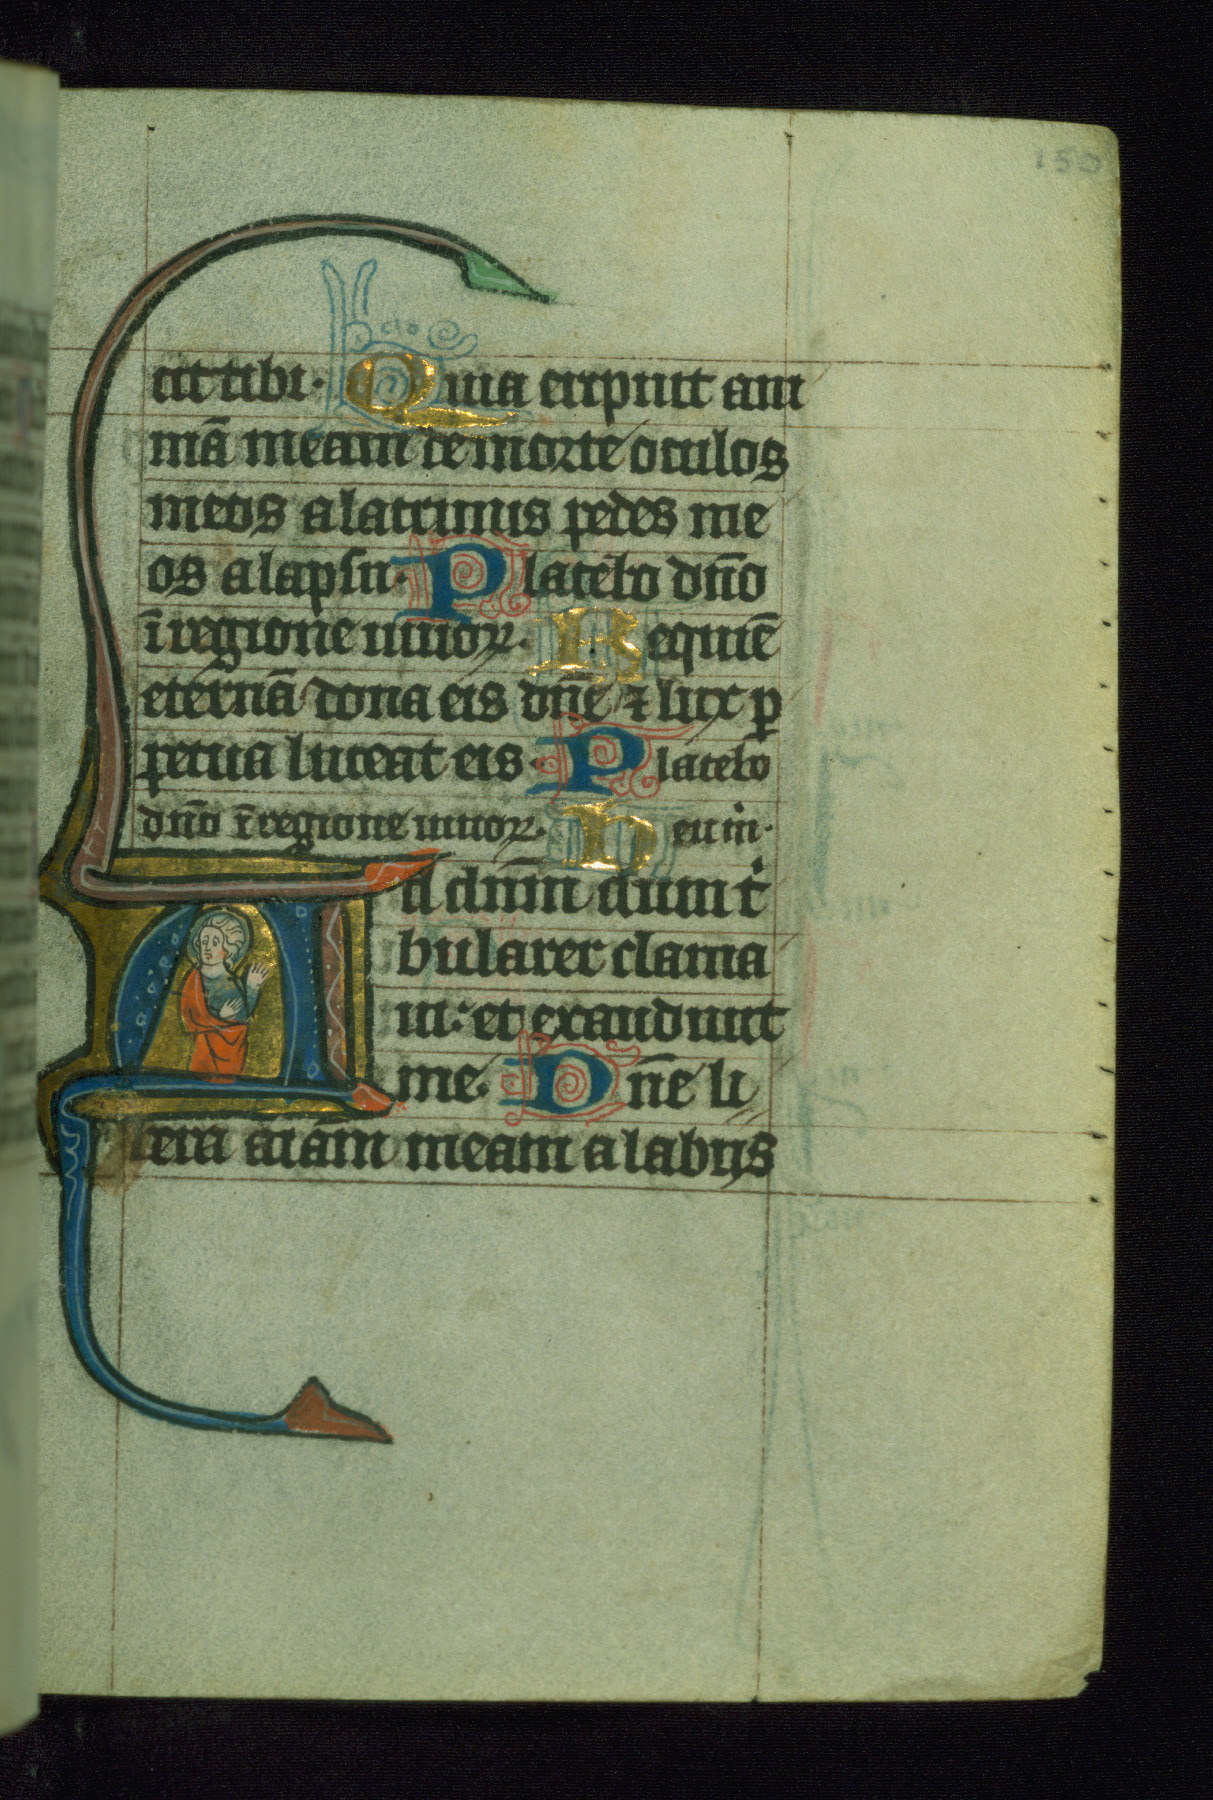 150
cit tibi. Quia eripuit ani
mā meam de morte oculos
meos a lacrimis pedes me
os a lapsu. Placēbo dn̄o
ī regione uiuoꝝ. Requiē
eternā dona eis dn̄e ⁊ lux ꝑ
petua luceat eis. Placebo
dn̄o ī regione uiuoꝝ. heu m̄.
Ad dn̄m dum t̄
bularer clama
ui: et exaudiuit
me. Dn̄e li
bera aīam meam a labijs